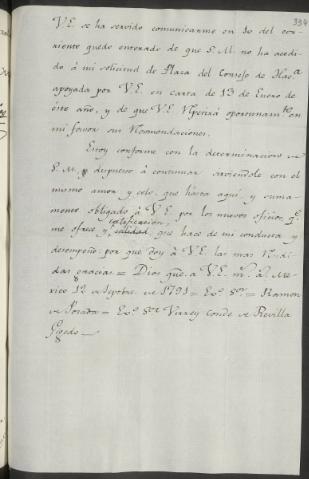 334
V.E. se ha servido comunicarme en 10 del cor-
riente quedo enterado de que S.M. no ha accedi-
do à mi solicitud de Plaza del Consejo de Haz.ª
apoyada por V.E. en carta de 13 de Enero de
este año, y de que V.E. repetirá oportunam.te en
mi favor sus Recomendaciones.
Estoy conforme con la determinacion de
S.M. y dispuesto à continuar sirviendole con el
mismo amor y celo, que hasta aqui, y suma-
mente obligado à V.E. por los nuevos oficios q.e
certificacion
me ofrece y calidad, que hace de mi conducta y
desempeño: por que doy à V.E. las mas rendi-
das gracias = Dios gue. à V.E. m.s a.s Me-
xico 12 de Septbre. de 1791 = Ex.o S.or = Ramon
de Posada = Ex.o S.or Virrey Conde de Revilla
Gigedo